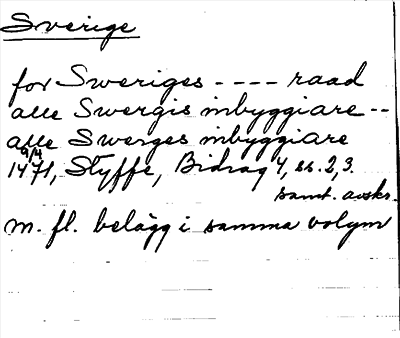 Sverige
for Sweriges ---- raad
alle Swergis inbyggiare --
alle Swerges inbyggiare
9/4
1471, Styffe, Bidrag 4, ss. 2, 3.
samt. avskr.
m. fl. belägg i samma volym